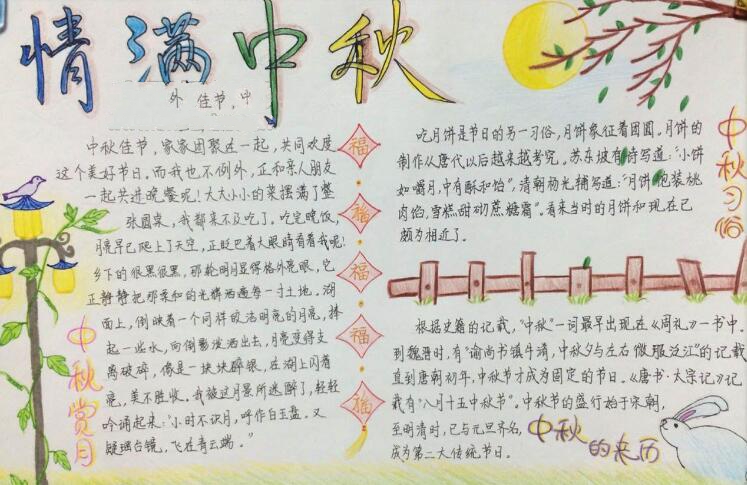 情满中秋
外 佳节,中
中秋佳节，家家团聚在一起，共同欢度
这个美好节日。而我也不例外，正和亲人朋友
一起共进晚餐呢！大大小小的菜摆满了整
张圆桌，我都来不及吃了。吃完晚饭
月亮早已爬上了天空，正眨巴着大眼睛看着我呢！
乡下的很黑很黑，那轮明月显得格外亮眼，它
正静静把那柔和的光辉洒遍每一寸土地。湖
面上，倒映着一个同样皎洁明亮的月亮，捧
起一些水，向倒影泼洒出去，月亮变得支
离破碎，像是一块块碎银，在湖上闪着
亮，美不胜收。我被这月景所迷醉了，轻轻
吟诵起来：“小时不识月，呼作白玉盘，又
疑瑶台镜，飞在青云端。”
中秋赏月
福
福
福
福
福
吃月饼是节日的另一习俗，月饼象征着团圆。月饼的
制作从唐代以后越来越考究。苏东坡有诗写道：“小饼
如嚼月，中有酥和饴”，清朝杨光辅写道：“月饼饱装桃
肉馅，雪糕甜砌蔗糖霜”。看来当时的月饼和现在已
颇为相近了。
中秋习俗
根据史籍的记载，“中秋”一词最早出现在《周礼》一书中。
到魏晋时，有“谕尚书镇牛渚，中秋夕与左右微服泛江”的记载
直到唐朝初年，中秋节才成为固定的节日。《唐书·太宗记》记
载有“八月十五中秋节”。中秋节的盛行始于宋朝，
至明清时，已与元旦齐名，
成为第二大传统节日。
中秋的来历